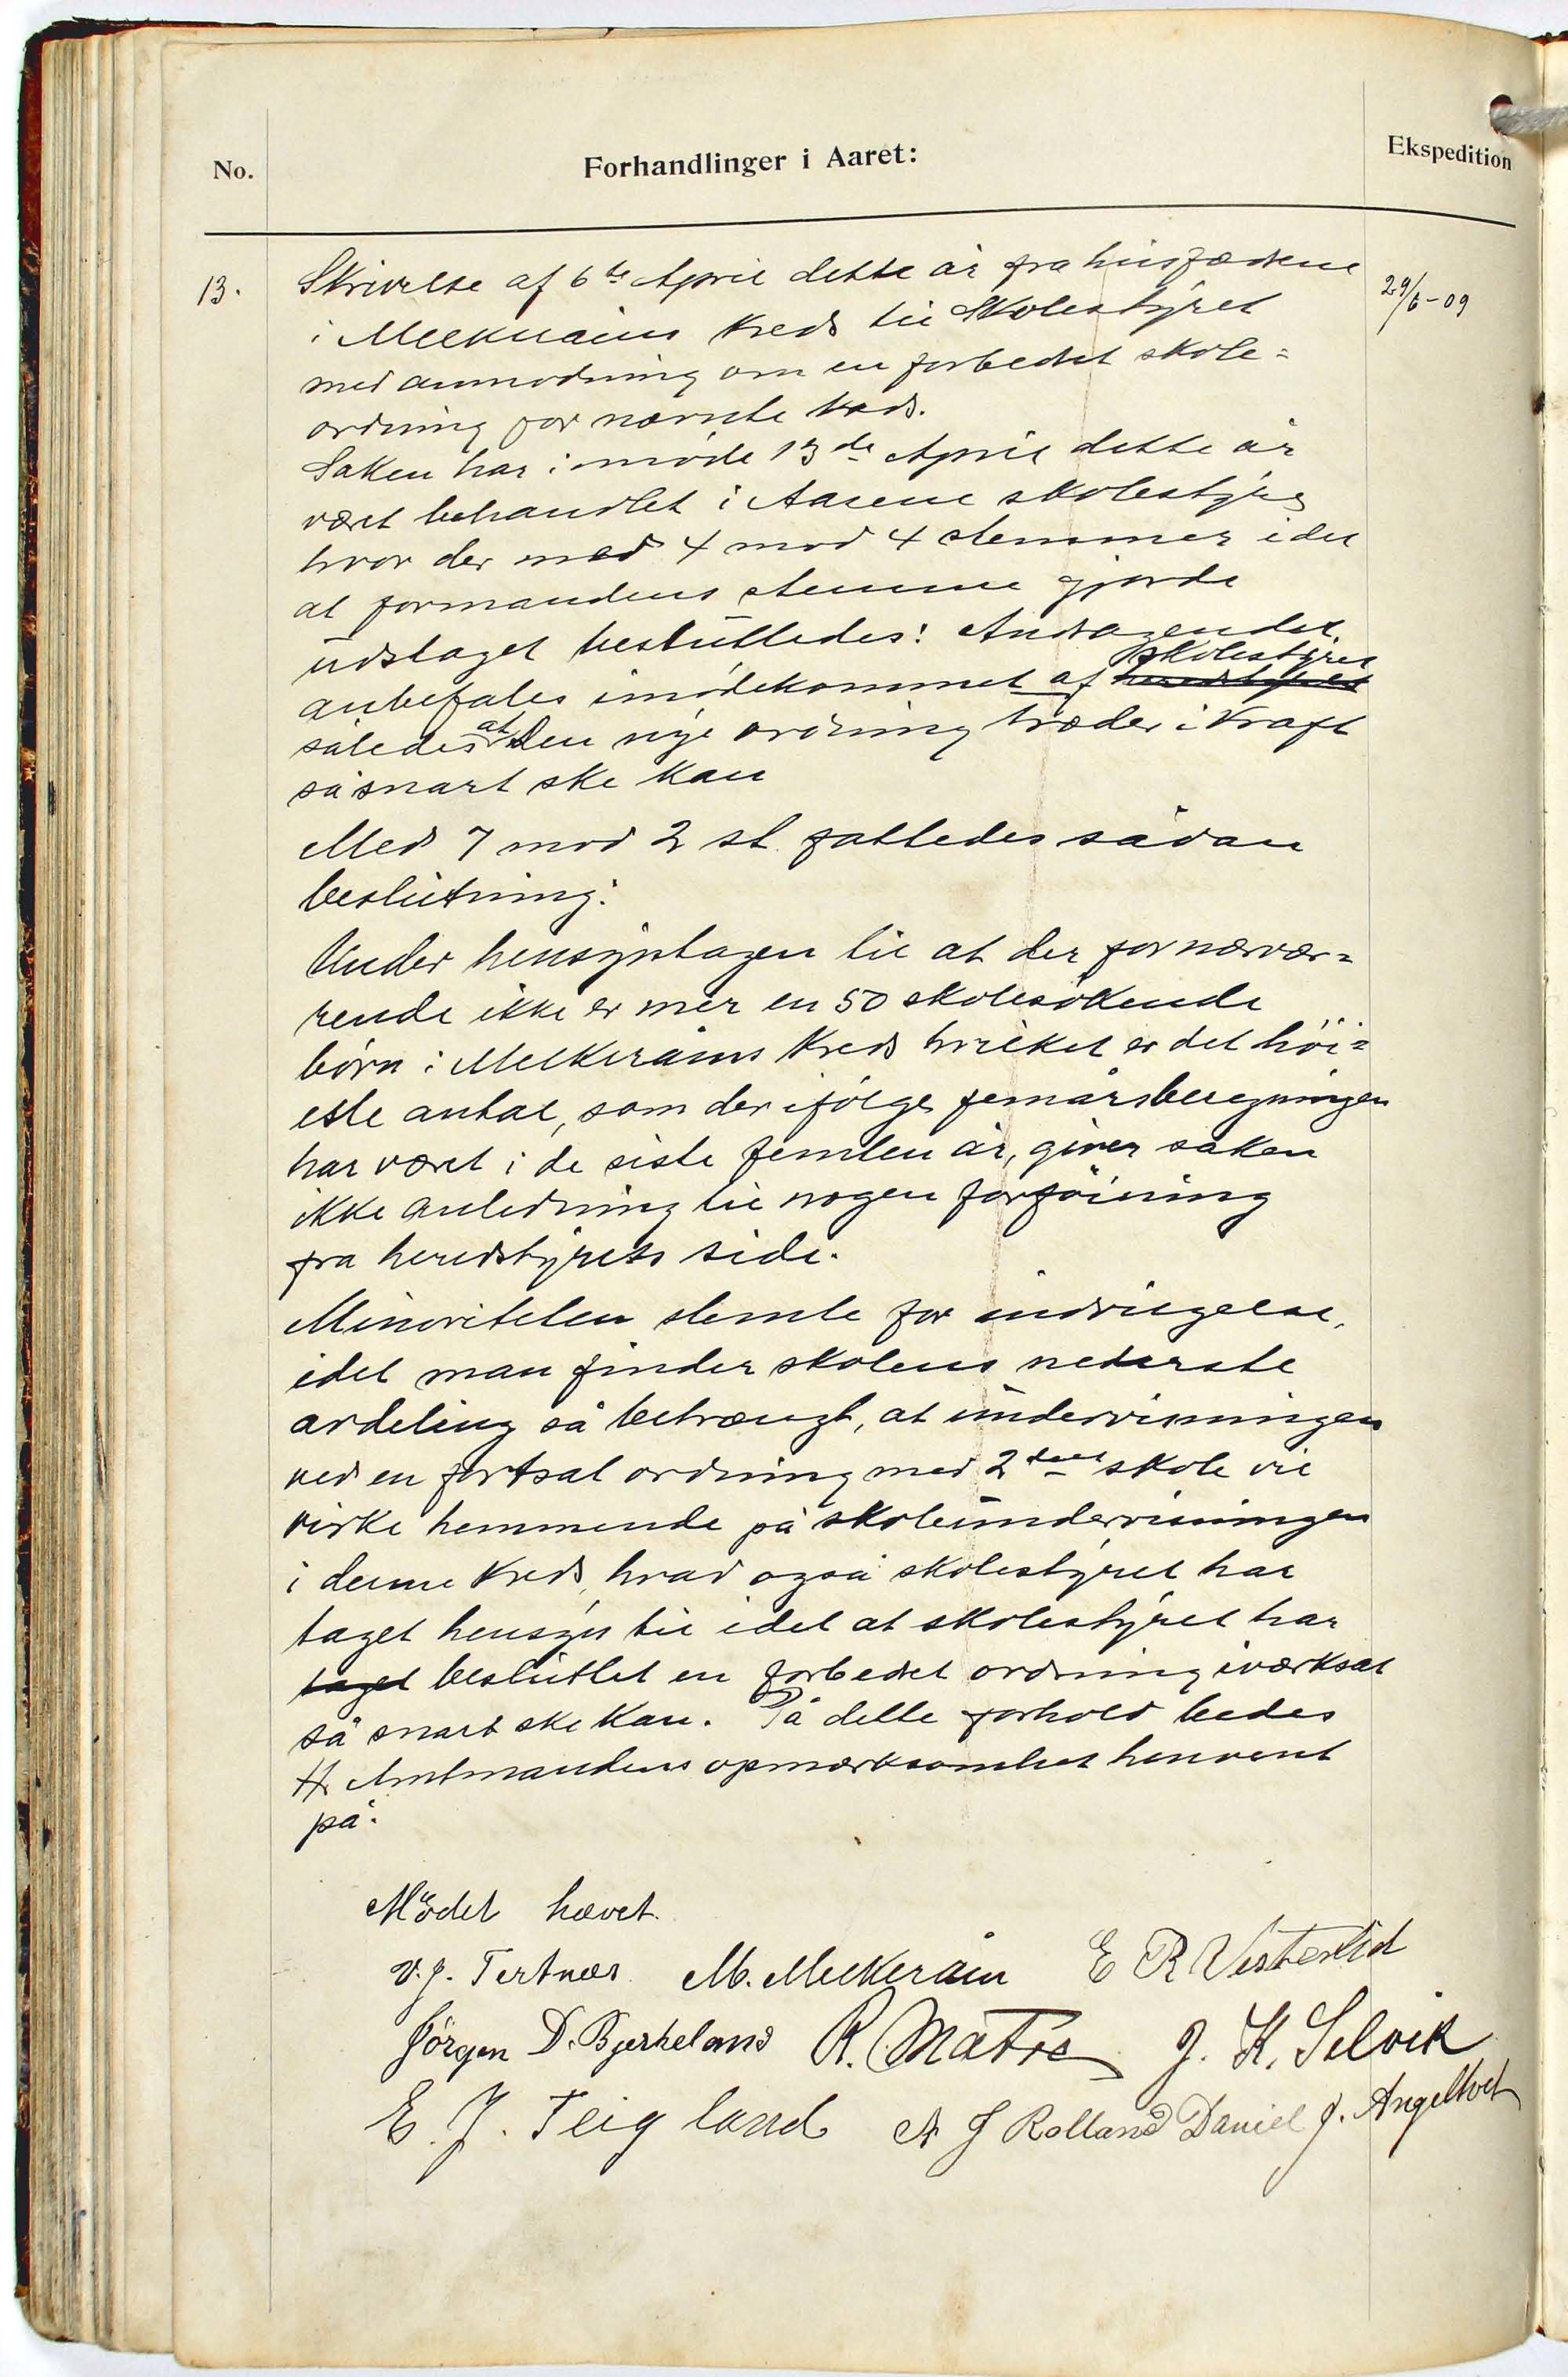 No.
Forhandlinger i Aaret:
Ekspedition
13.
29/6-09
Skrivelse af 6te April dette år fra husfædrene
i Melkeråens Kreds til Skolestyret
med anmodning om en forbedret skole=
ordning for nævnte kreds.
Saken har i møde 13de April dette år
vært behandlet i Aasene skolestyre
hvor der med 4 mod 4 stemmer idet
at formandens stemme gjorde
udslaget besluttedes: Andragendet
anbefales imødekommet af heredstyret skolestyret
således at den nye ordning træder i kraft
så snart ske kan
Med 7 mod 2 st. fattedes sådan
beslutning:
Under hensyntagen til at der for nærvær=
rende ikke er mer en 50 skolesøkende
børn i Melkeråens Kreds hvilket er det høi=
este antal, som der ifølge femårsberegningen
har været i de siste femten år, giver saken
ikke anledning til nogen forføining
fra heredstyrets side.
Minoriteten stemte for indvilgelse,
idet man finder skolens nederste
avdeling så betrængt, at undervisningen
ved en fortsat ordning med 2delt skole vil
virke hemmende på skoleundervisningen
i denne Kreds, hvad også skolestyret har
taget hensyn til idet at skolestyret har
taget besluttet en forbedret ordning iværksat
så snart ske kan. På dette forhold bedes
Hr Amtmandens opmærksomhet henvent
på.
Mødet hævet.
V. J. Tertnæs M. Melkeråen E R Vesterlid
Jørgen D. Bjerkeland R. Matre J. K. Selvik
E. J. Teigland A J Rolland Daniel J. Angeltvet